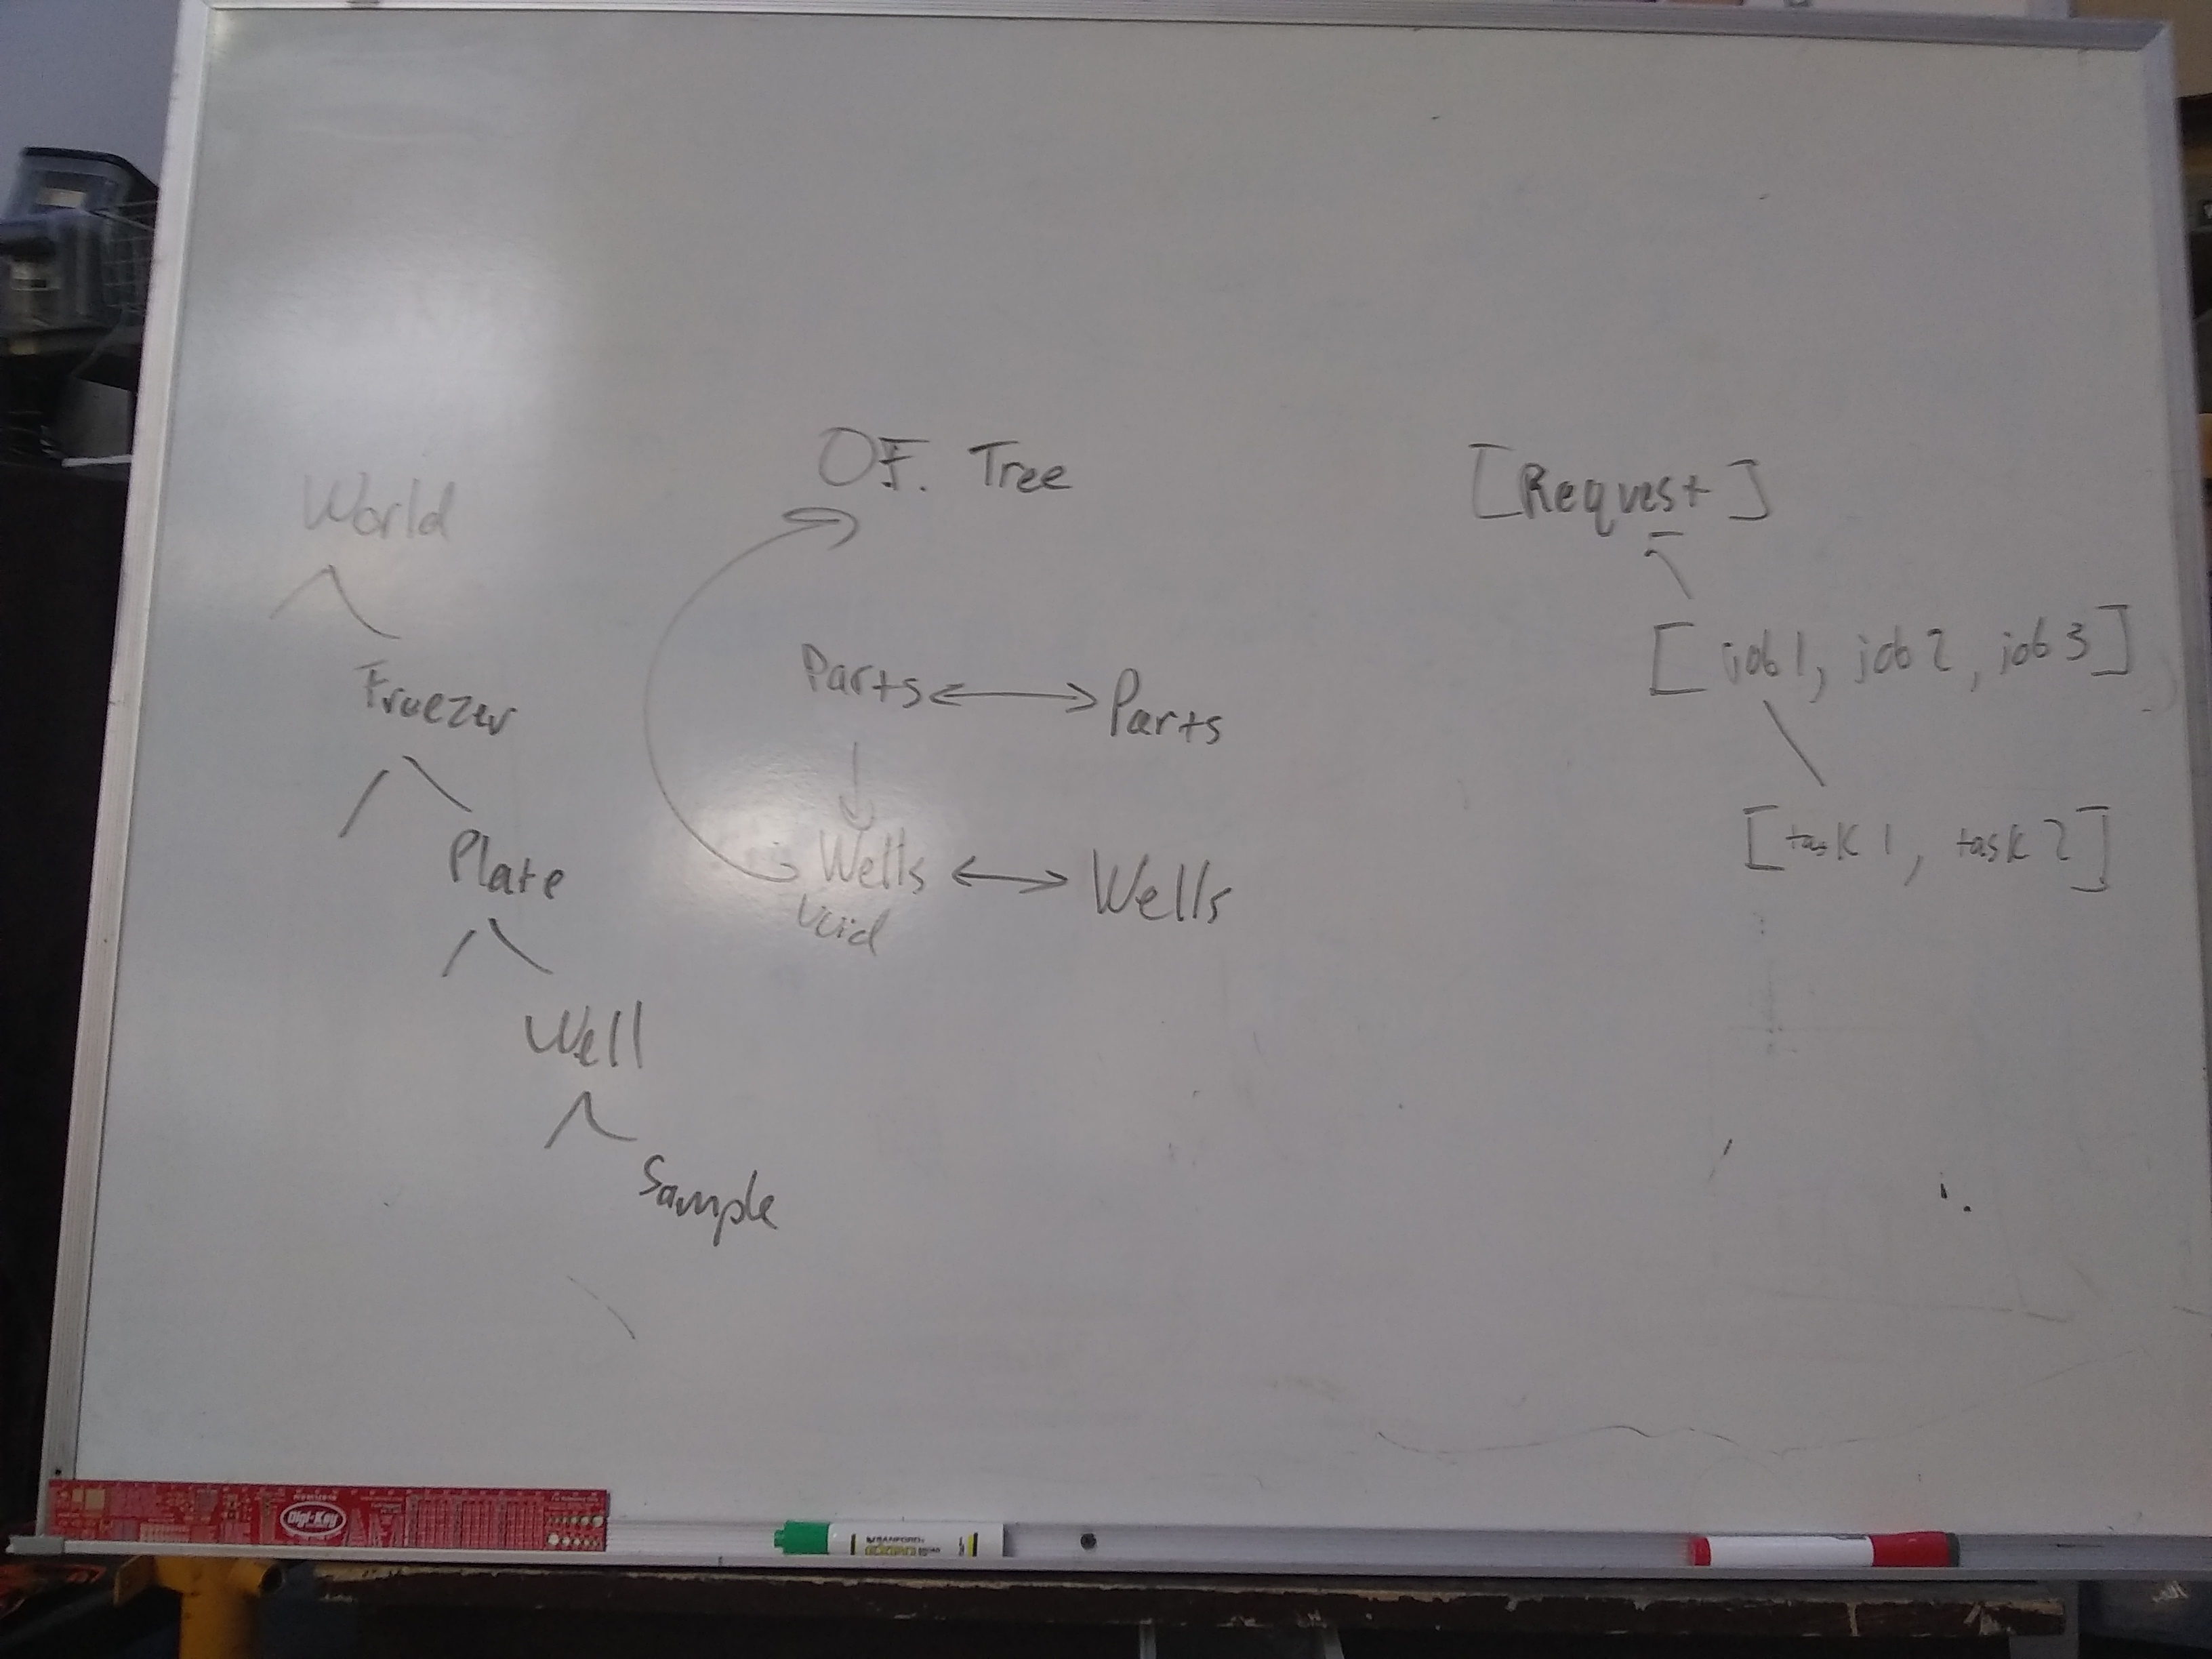 World
Freezer
Plate
Well
Sample
O.F. Tree
Parts Parts
Wells Wells
[Request]
[job1, job2, job3]
[task1, task2]
Digi-Key
SANFORD